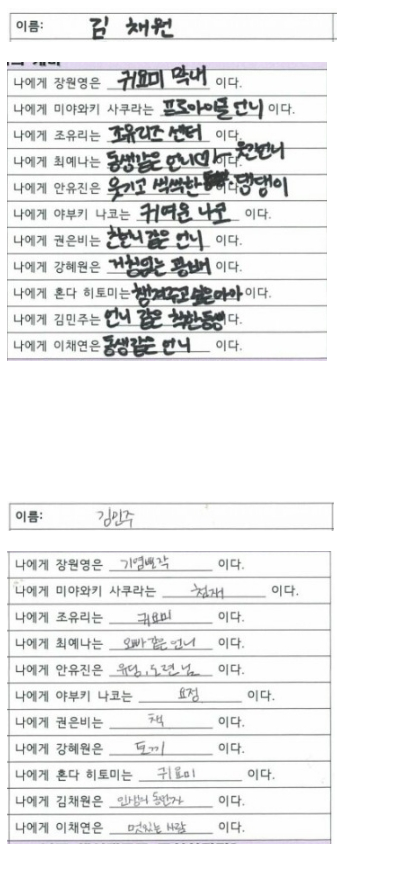 이름: 김 채원
나에게 장원영은 귀요미 막내 이다.
나에게 미야와키 사쿠라는 프로아이돌 언니 이다.
나에게 조유리는 조유리즈 센터 이다.
나에게 최예나는 동생같은 언니 이다. 웃긴언니
나에게 안유진은 웃기고 씩씩한 댕댕이 이다.
나에게 야부키 나코는 귀여운 나코 이다.
나에게 권은비는 친한 같은 언니 이다.
나에게 강혜원은 거침없는 광배 이다.
나에게 혼다 히토미는 챙겨주고싶은아가 이다.
나에게 김민주는 언니 같은 착한동생 이다.
나에게 이채연은 동생같은 언니 이다.
이름: 김민주
나에게 장원영은 기염뽀짝 이다.
나에게 미야와키 사쿠라는 천재 이다.
나에게 조유리는 귀요미 이다.
나에게 최예나는 오빠 같은 언니 이다.
나에게 안유진은 유댕, 도련님 이다.
나에게 야부키 나코는 요정 이다.
나에게 권은비는 책 이다.
나에게 강혜원은 토끼 이다.
나에게 혼다 히토미는 귀요미 이다.
나에게 김채원은 동반자 이다.
나에게 이채연은 멋있는 사람 이다.